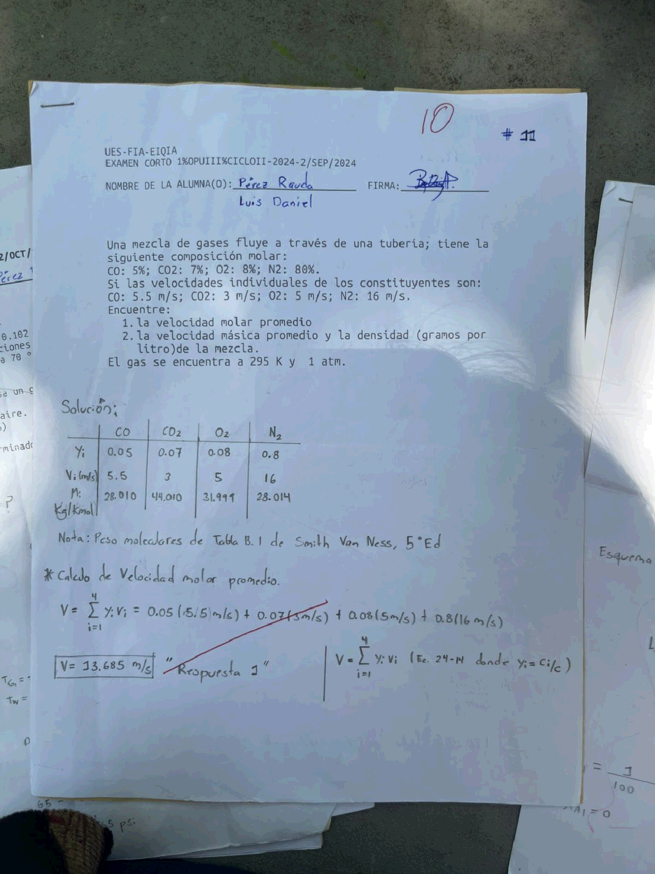 10
# 11
UES-FIA-EIQIA
EXAMEN CORTO 1%OPUIII%CICLOII-2024-2/SEP/2024
NOMBRE DE LA ALUMNA(O): Pérez Rauda FIRMA:
Luis Daniel
Una mezcla de gases fluye a través de una tubería; tiene la
siguiente composición molar:
CO: 5%; CO2: 7%; O2: 8%; N2: 80%.
Si las velocidades individuales de los constituyentes son:
CO: 5.5 m/s; CO2: 3 m/s; O2: 5 m/s; N2: 16 m/s.
Encuentre:
1. la velocidad molar promedio
2. la velocidad másica promedio y la densidad (gramos por
litro)de la mezcla.
El gas se encuentra a 295 K y 1 atm.
Solución;
CO CO2 O2 N2
Yi 0.05 0.07 0.08 0.8
Vi(m/s) 5.5 3 5 16
Mi 28.010 44.010 31.999 28.014
Kg/Kmol
Nota: Peso moleculares de Tabla B.1 de Smith Van Ness, 5°Ed
* Calculo de Velocidad molar promedio.
V = 4∑i=1 Yi Vi = 0.05 (5.5 m/s) + 0.07(3m/s) + 0.08(5m/s) + 0.8(16 m/s)
V = 13.685 m/s "Respuesta 1"
V = 4∑i=1 yi vi (Ec. 24-14 donde yi = ci/c)
2/OCT/
Pérez
0.102
ciones
a 70 °
aire.
minado
?
TG =
Tw =
65
psi
Esquema
= 1
100
= 0